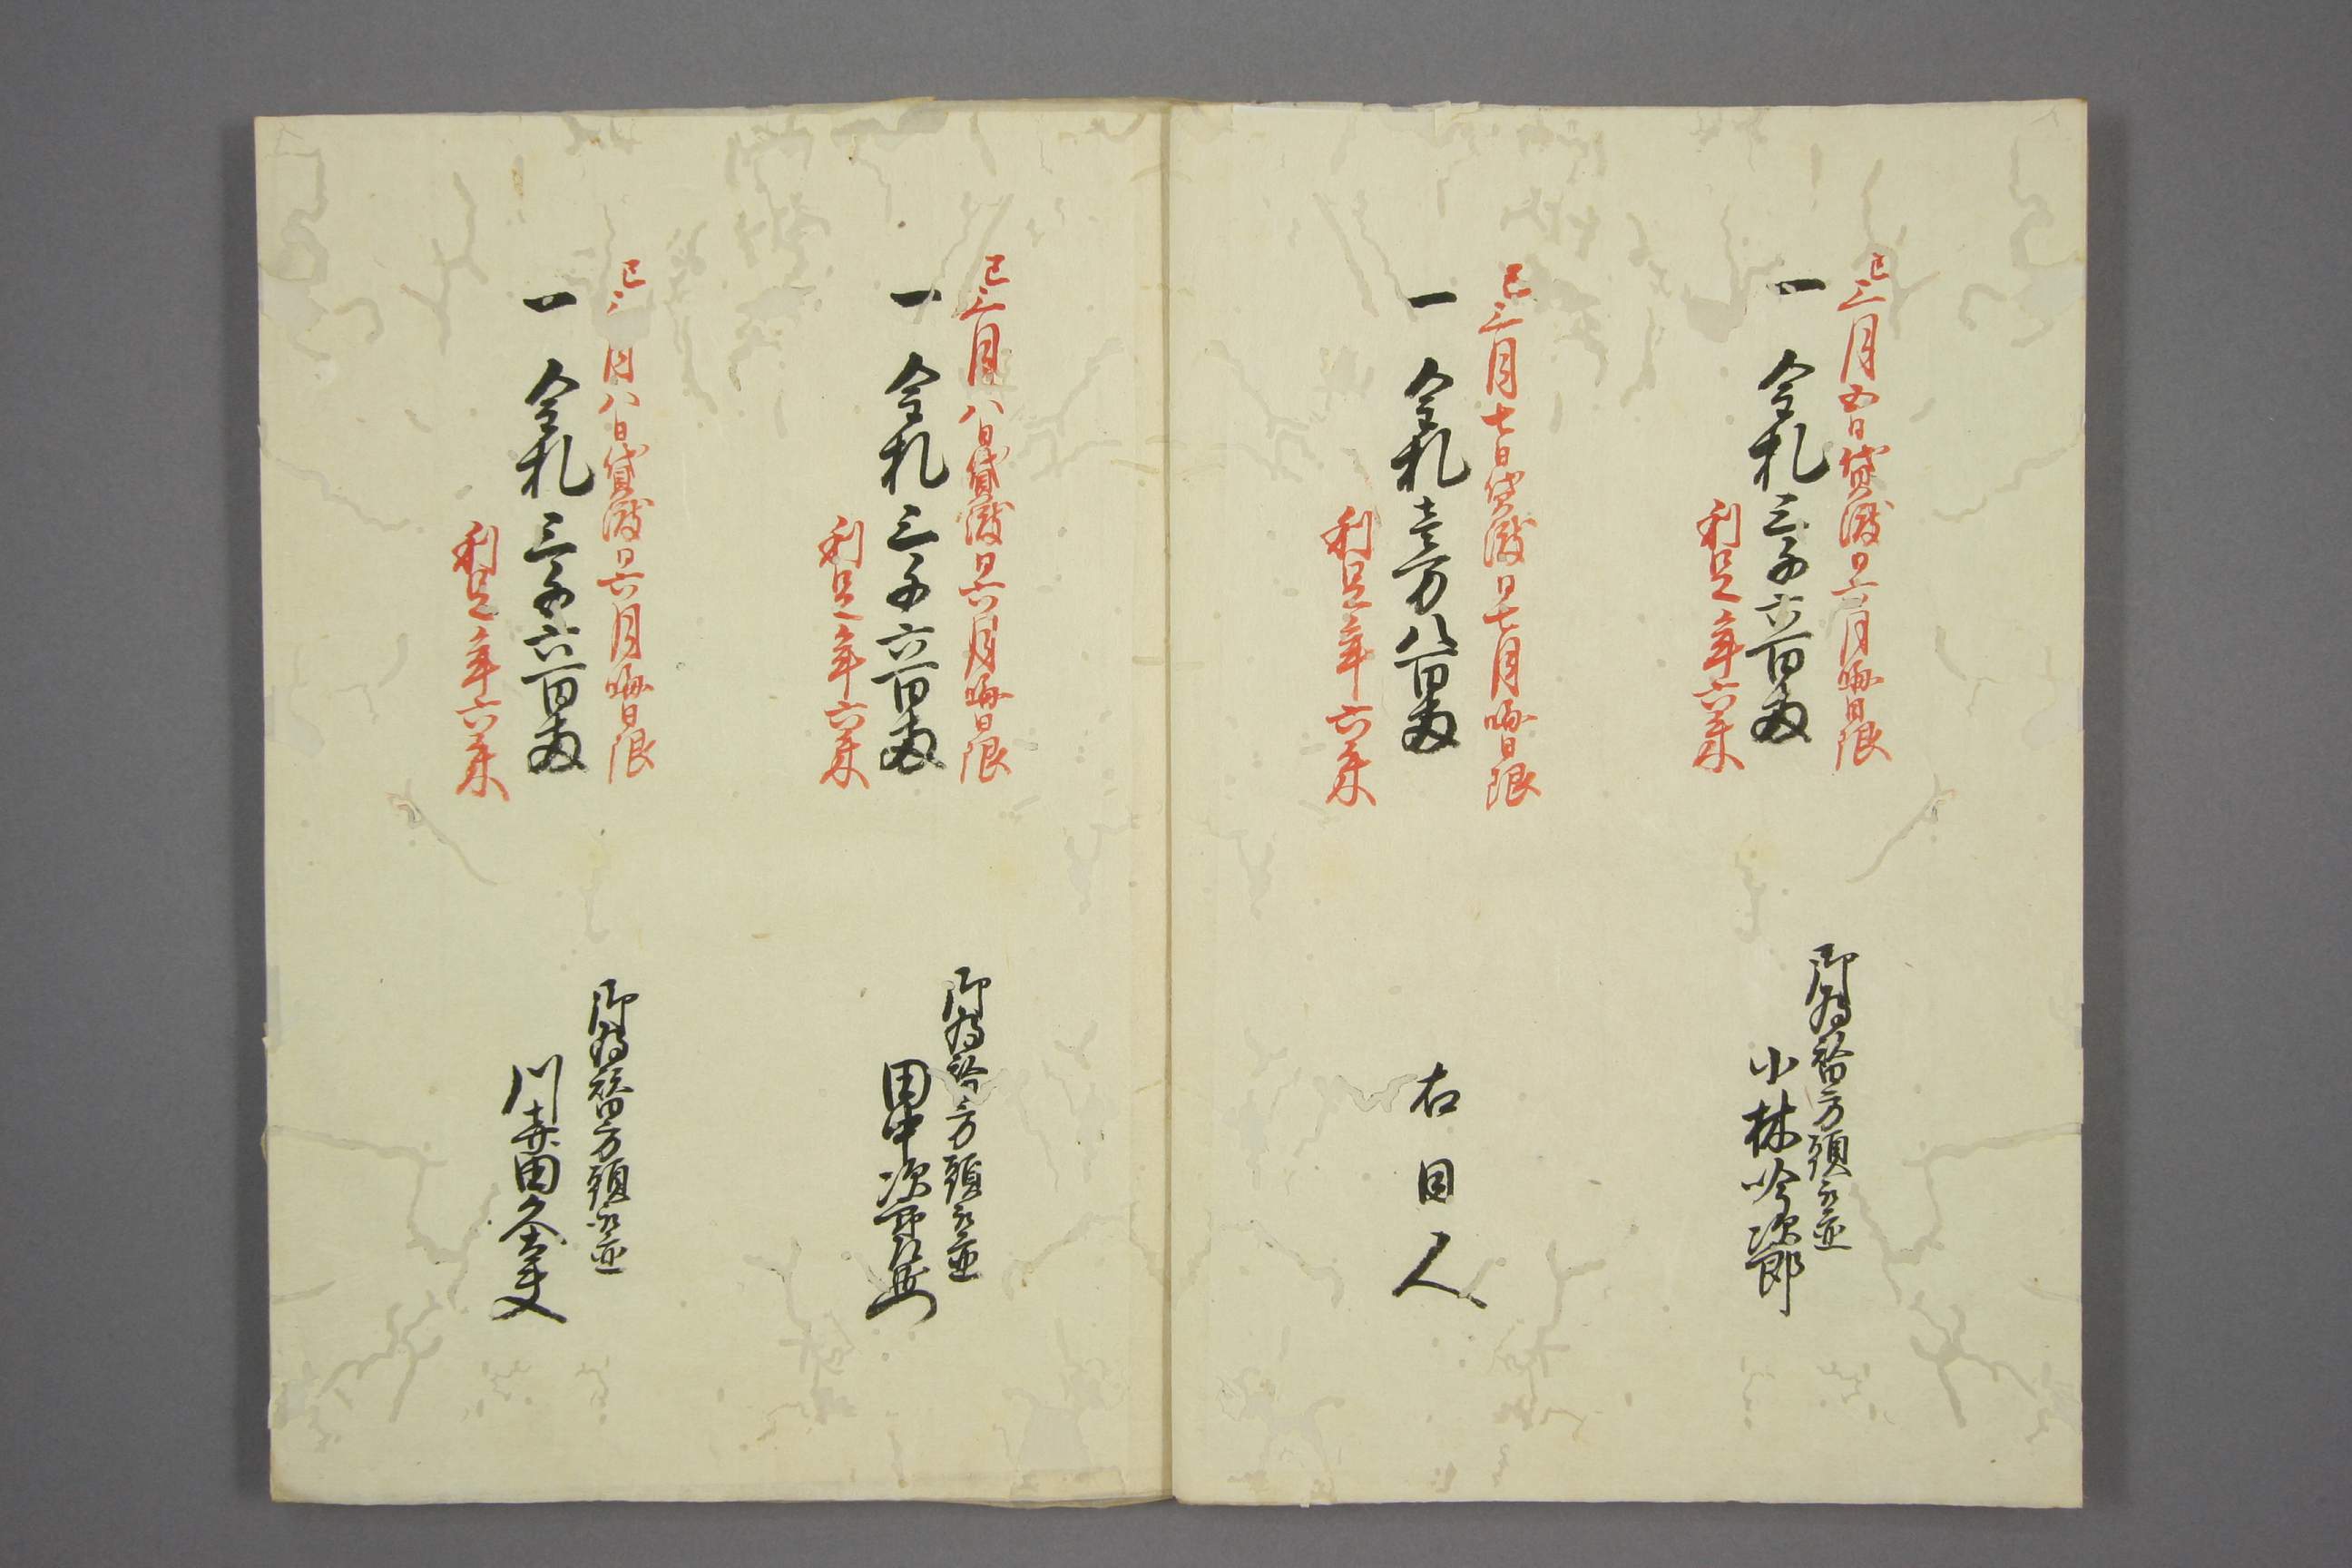 巳三月五日貸渡同六月晦日限
一 金札三千六百両
利足壱年六朱
御為替方頭取並
小林吟次郎
巳三月七日貸渡同七月晦日限
一 金札壱万八百両
利足壱年六朱
右同人
巳三月八日貸渡同六月晦日限
一 金札三千六百両
利足壱年六朱
御為替方頭取並
田中次郎左衛門
巳三月八日貸渡同六月晦日限
一 金札三千六百両
利足壱年六朱
御為替方頭取並
川喜田久太夫